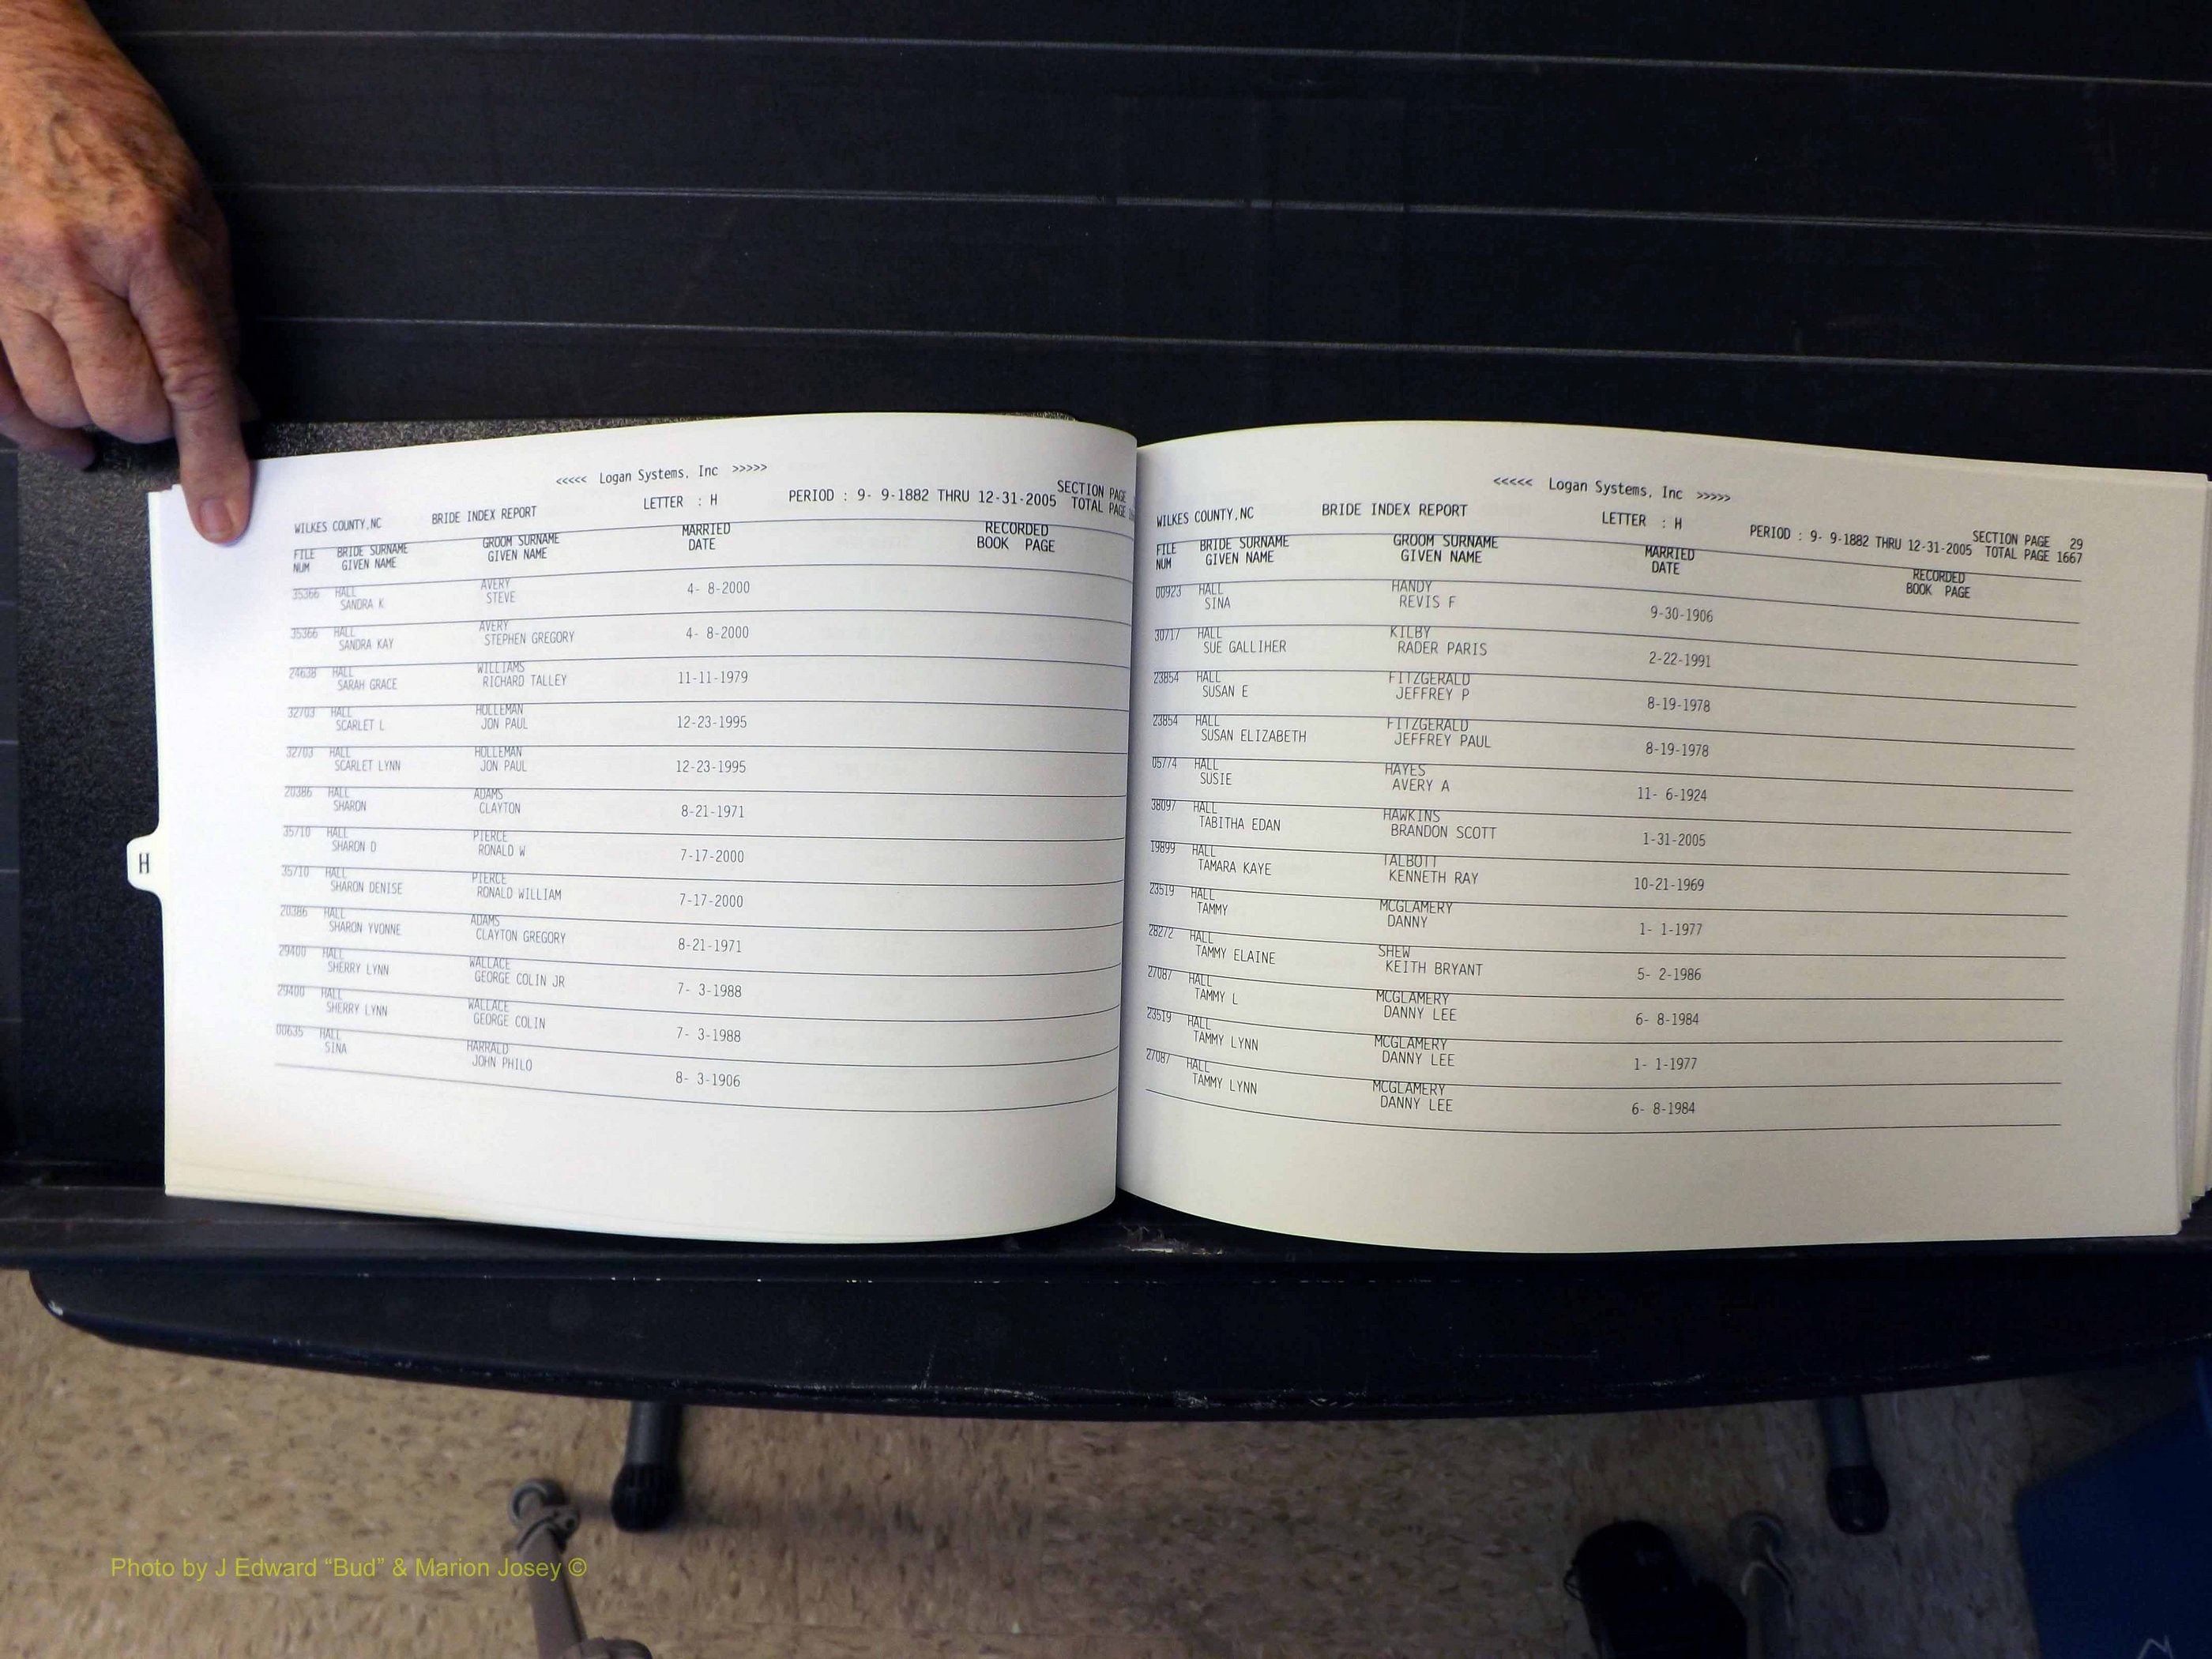 <<<<< Logan Systems, Inc >>>>>
WILKES COUNTY,NC BRIDE INDEX REPORT LETTER : H PERIOD : 9- 9-1882 THRU 12-31-2005 SECTION PAGE
TOTAL PAGE
FILE BRIDE SURNAME GROOM SURNAME MARRIED RECORDED
NUM GIVEN NAME GIVEN NAME DATE BOOK PAGE
35366 HALL AVERY
SANDRA K STEVE 4- 8-2000
35366 HALL AVERY
SANDRA KAY STEPHEN GREGORY 4- 8-2000
24638 HALL WILLIAMS
SARAH GRACE RICHARD TALLEY 11-11-1979
32703 HALL HOLLEMAN
SCARLET L JON PAUL 12-23-1995
32703 HALL HOLLEMAN
SCARLET LYNN JON PAUL 12-23-1995
20386 HALL ADAMS
SHARON CLAYTON 8-21-1971
35710 HALL PIERCE
SHARON D RONALD W 7-17-2000
35710 HALL PIERCE
SHARON DENISE RONALD WILLIAM 7-17-2000
20386 HALL ADAMS
SHARON YVONNE CLAYTON GREGORY 8-21-1971
29400 HALL WALLACE
SHERRY LYNN GEORGE COLIN JR 7- 3-1988
29400 HALL WALLACE
SHERRY LYNN GEORGE COLIN 7- 3-1988
00635 HALL HARRALD
SINA JOHN PHILO 8- 3-1906
H
<<<<< Logan Systems, Inc >>>>>
WILKES COUNTY,NC BRIDE INDEX REPORT LETTER : H PERIOD : 9- 9-1882 THRU 12-31-2005 SECTION PAGE 29
TOTAL PAGE 1667
FILE BRIDE SURNAME GROOM SURNAME MARRIED RECORDED
NUM GIVEN NAME GIVEN NAME DATE BOOK PAGE
00923 HALL HANDY
SINA REVIS F 9-30-1906
30717 HALL KILBY
SUE GALLIHER RADER PARIS 2-22-1991
23854 HALL FITZGERALD
SUSAN E JEFFREY P 8-19-1978
23854 HALL FITZGERALD
SUSAN ELIZABETH JEFFREY PAUL 8-19-1978
05774 HALL HAYES
SUSIE AVERY A 11- 6-1924
38097 HALL HAWKINS
TABITHA EDAN BRANDON SCOTT 1-31-2005
19899 HALL TALBOTT
TAMARA KAYE KENNETH RAY 10-21-1969
23519 HALL MCGLAMERY
TAMMY DANNY 1- 1-1977
28272 HALL SHEW
TAMMY ELAINE KEITH BRYANT 5- 2-1986
27087 HALL MCGLAMERY
TAMMY L DANNY LEE 6- 8-1984
23519 HALL MCGLAMERY
TAMMY LYNN DANNY LEE 1- 1-1977
27087 HALL MCGLAMERY
TAMMY LYNN DANNY LEE 6- 8-1984
Photo by J Edward “Bud” & Marion Josey ©